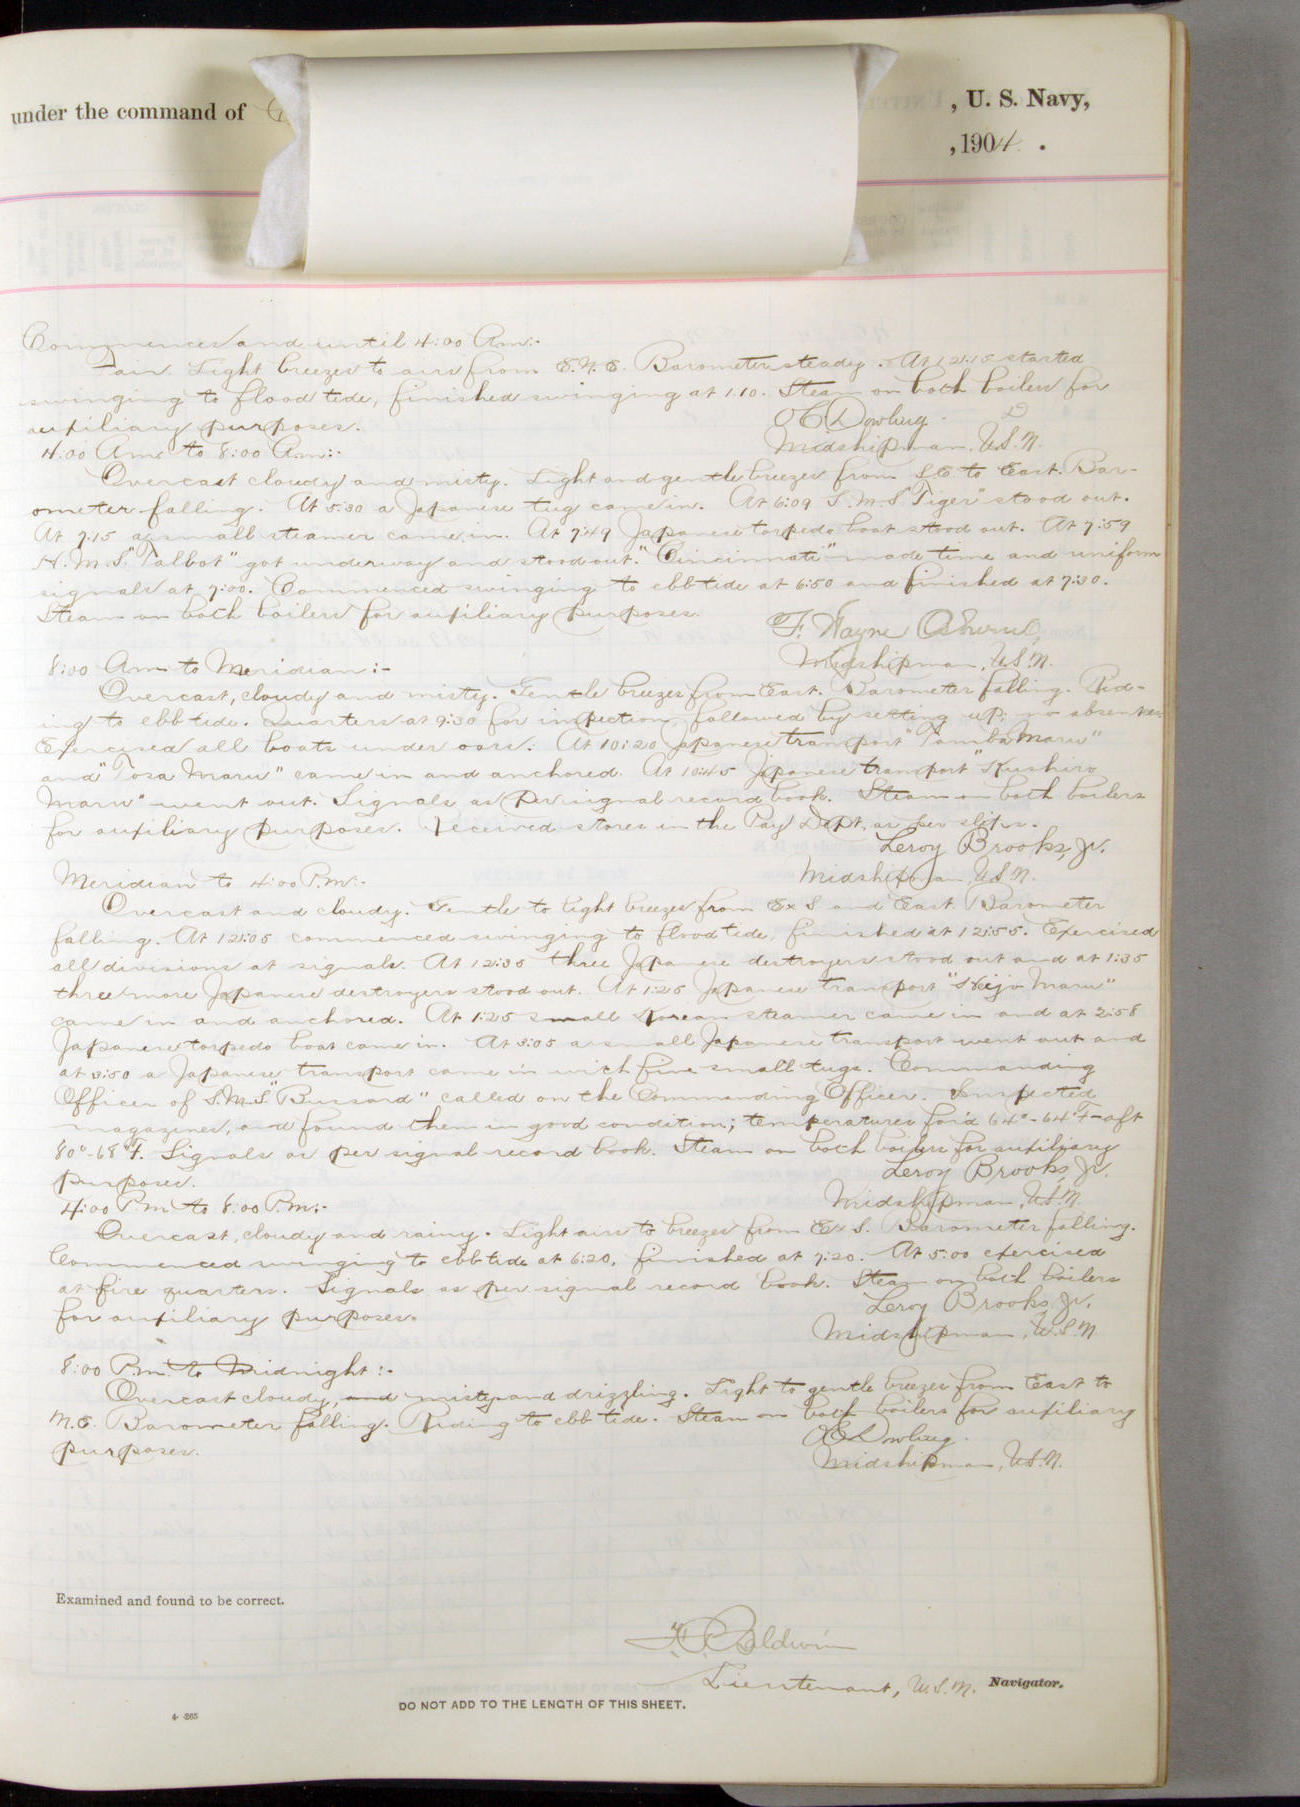 under the command of
, U. S. Navy,
, 1904 .
Commences and until 4:00 A.m:-
Fair. Light breezes to airs from E.N.E. Barometer steady. At 12:15 started
swinging to flood tide, finished swinging at 1.10. Steam on both boilers for
auxiliary purposes.
Dowling
Midshipman, U.S.N.
4:00 A.m. to 8:00 A.m:-
Overcast cloudy and misty. Light and gentle breezes from S.E. to East. Bar-
ometer falling. At 5:30 a Japanese tug came in. At 6:09 S.M.S. "Tiger" stood out.
At 7.15 a small steamer came in. At 7:49 Japanese torpedo boat stood out. At 7:59
H.M.S. "Talbot" got underway and stood out. "Cincinnati" made time and uniform
signals at 7:00. Commenced swinging to ebb tide at 6:50 and finished at 7:30.
Steam on both boilers for auxiliary purposes.
F. Wayne Osburn
Midshipman, U.S.N.
8:00 A.m. to Meridian:-
Overcast, cloudy and misty. Gentle breezes from East. Barometer falling. Rid-
ing to ebb tide. Quarters at 9:30 for inspection, followed by setting up; no absentees.
Exercised all boats under oars. At 10:20 Japanese transport "Tamba Maru"
and "Tosa Maru" came in and anchored. At 10:45 Japanese transport "Kushiro
Maru" went out. Signals as per signal record book. Steam on both boilers
for auxiliary purposes. Received stores in the Pay Dept, as per slips.
Leroy Brooks, Jr.
Midshipman, U.S.N.
Meridian to 4:00 P.m:-
Overcast and cloudy. Gentle to light breezes from ExS and East. Barometer
falling. At 12:05 commenced swinging to flood tide, finished at 12:55. Exercised
all divisions at signals. At 12:35 three Japanese destroyers stood out and at 1:35
three more Japanese destroyers stood out. At 1:25 Japanese transport "Heijo Maru"
came in and anchored. At 1:25 small Korean steamer came in and at 2:58
Japanese torpedo boat came in. At 3:05 a small Japanese transport went out and
at 3:50 a Japanese transport came in with five small tugs. Commanding
Officer of S.M.S. "Bussard" called on the Commanding Officer. Inspected
magazines, and found them in good condition; temperatures for'd 64°-64°F-aft
80°-68°F. Signals as per signal record book. Steam on both boilers for auxiliary
purposes.
Leroy Brooks, Jr.
Midshipman, U.S.N.
4:00 P.m. to 8:00 P.m:-
Overcast, cloudy and rainy. Light airs to breezes from ExS. Barometer falling.
Commenced swinging to ebb tide at 6:20, finished at 7:20. At 5:00 exercised
at fire quarters. Signals as per signal record book. Steam on both boilers
for auxiliary purposes.
Leroy Brooks, Jr.
Midshipman, U.S.N
8:00 P.m. to Midnight:-
Overcast cloudy, and misty and drizzling. Light to gentle breezes from East to
N.E. Barometer falling. Riding to ebb tide. Steam on both boilers for auxiliary
purposes.
Dowling.
Midshipman, U.S.N.
Examined and found to be correct.
Baldwin
Lieutenant, U.S.N. Navigator.
DO NOT ADD TO THE LENGTH OF THIS SHEET.
4-265